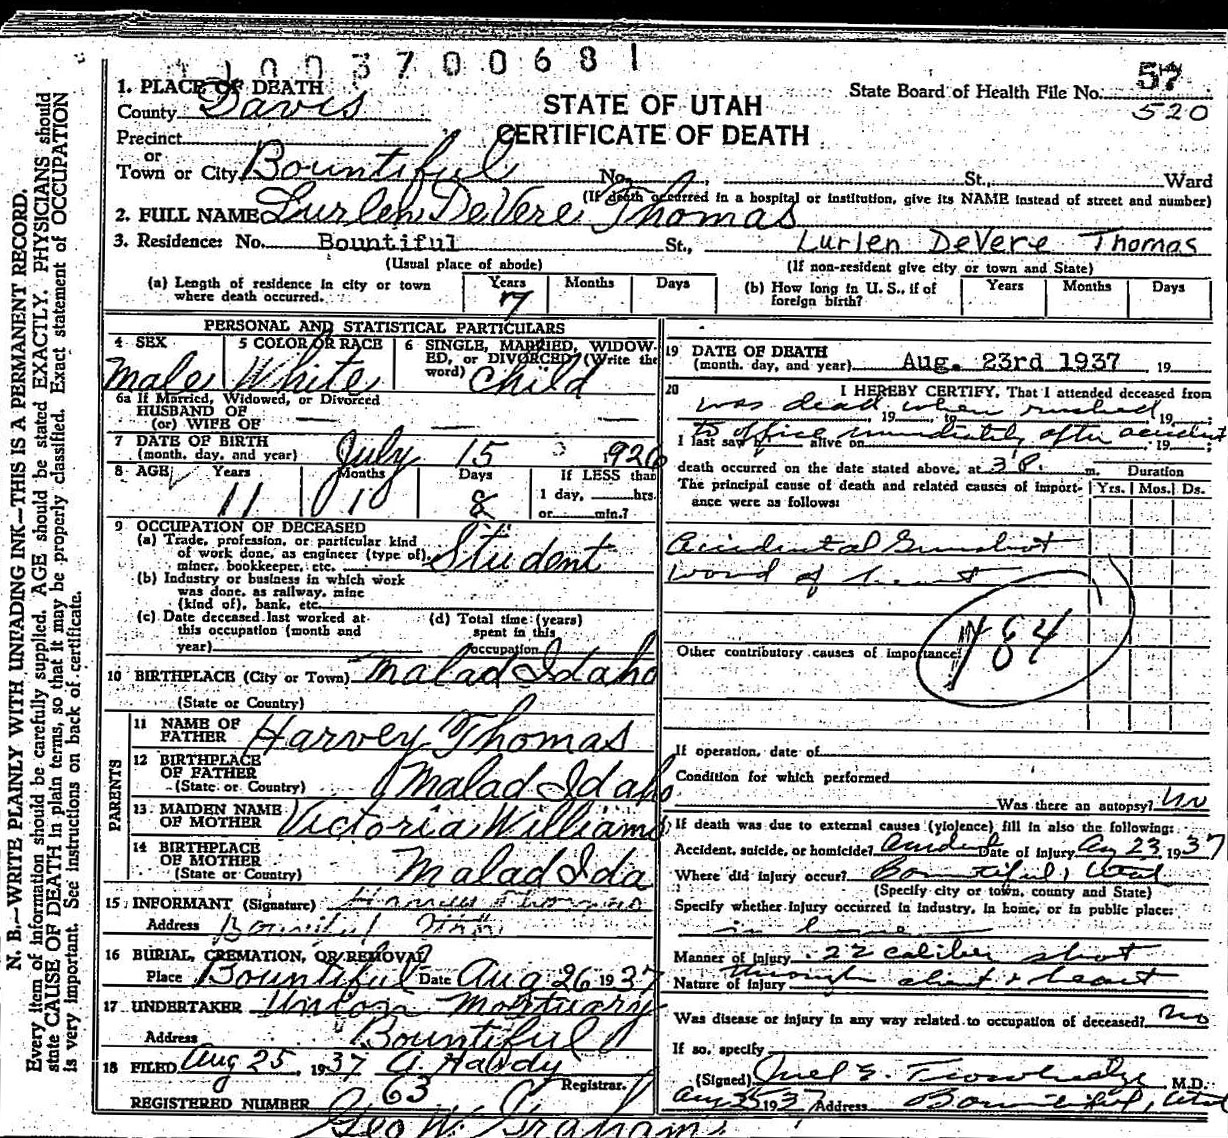 1003700681
57
520
State Board of Health File No.
STATE OF UTAH
CERTIFICATE OF DEATH
1. PLACE OF DEATH
County Davis
Precinct
or
Town or City Bountiful No. , St., Ward
(If death occurred in a hospital or institution, give its NAME instead of street and number)
2. FULL NAME Lurlen DeVere Thomas
3. Residence: No. Bountiful St., Lurlen DeVere Thomas
(Usual place of abode) (If non-resident give city or town and State)
(a) Length of residence in city or town where death occurred. Years 7 Months Days
(b) How long in U. S., if of foreign birth? Years Months Days
PERSONAL AND STATISTICAL PARTICULARS
4 SEX Male
5 COLOR OR RACE White
6 SINGLE, MARRIED, WIDOWED, or DIVORCED? (Write the word) Child
6a If Married, Widowed, or Divorced
HUSBAND OF —
(or) WIFE OF —
7 DATE OF BIRTH
(month, day, and year) July 15 926
8 AGE Years 11 Months 10 Days 8 If LESS than
1 day, hrs.
or min.?
9 OCCUPATION OF DECEASED
(a) Trade, profession, or particular kind
of work done, as engineer (type of),
miner, bookkeeper, etc. Student
(b) Industry or business in which work
was done, as railway, mine
(kind of), bank, etc.
(c) Date deceased last worked at
this occupation (month and
year)
(d) Total time (years)
spent in this
occupation
10 BIRTHPLACE (City or Town) Malad Idaho
(State or Country)
PARENTS
11 NAME OF FATHER Harvey Thomas
12 BIRTHPLACE OF FATHER
(State or Country) Malad Idaho
13 MAIDEN NAME OF MOTHER Victoria Williams
14 BIRTHPLACE OF MOTHER
(State or Country) Malad Ida
15 INFORMANT (Signature) Thomas
Address Bountiful Utah
16 BURIAL, CREMATION, OR REMOVAL?
Place Bountiful Date Aug 26 1937
17 UNDERTAKER Union Mortuary
Address Bountiful
18 FILED Aug 25, 1937 A. Hardy
Registrar.
REGISTERED NUMBER 63
Geo W. Graham
19 DATE OF DEATH
(month, day, and year) Aug. 23rd 1937 , 19
20 I HEREBY CERTIFY, That I attended deceased from
was dead when rushed
, 19 , to , 19
to office immediately after accident
I last saw h alive on , 19
death occurred on the date stated above, at 3 P. m. Duration
The principal cause of death and related causes of importance were as follows: Yrs. Mos. Ds.
Accidental Gunshot
wound of heart
184
Other contributory causes of importance:
If operation, date of
Condition for which performed
Was there an autopsy? No
If death was due to external causes (violence) fill in also the following:
Accident, suicide, or homicide? Accident Date of injury Aug 23, 1937
Where did injury occur? Bountiful, Utah
(Specify city or town, county and State)
Specify whether injury occurred in industry, in home, or in public place:
in home
Manner of injury .22 caliber shot
Nature of injury through chest & heart
Was disease or injury in any way related to occupation of deceased? No
If so, specify
(Signed) Trowbridge, M.D.
Aug 25 1937 Address Bountiful, Utah
N. B.—WRITE PLAINLY WITH UNFADING INK—THIS IS A PERMANENT RECORD.
Every item of information should be carefully supplied. AGE should be stated EXACTLY. PHYSICIANS should
state CAUSE OF DEATH in plain terms, so that it may be properly classified. Exact statement of OCCUPATION
is very important. See instructions on back of certificate.